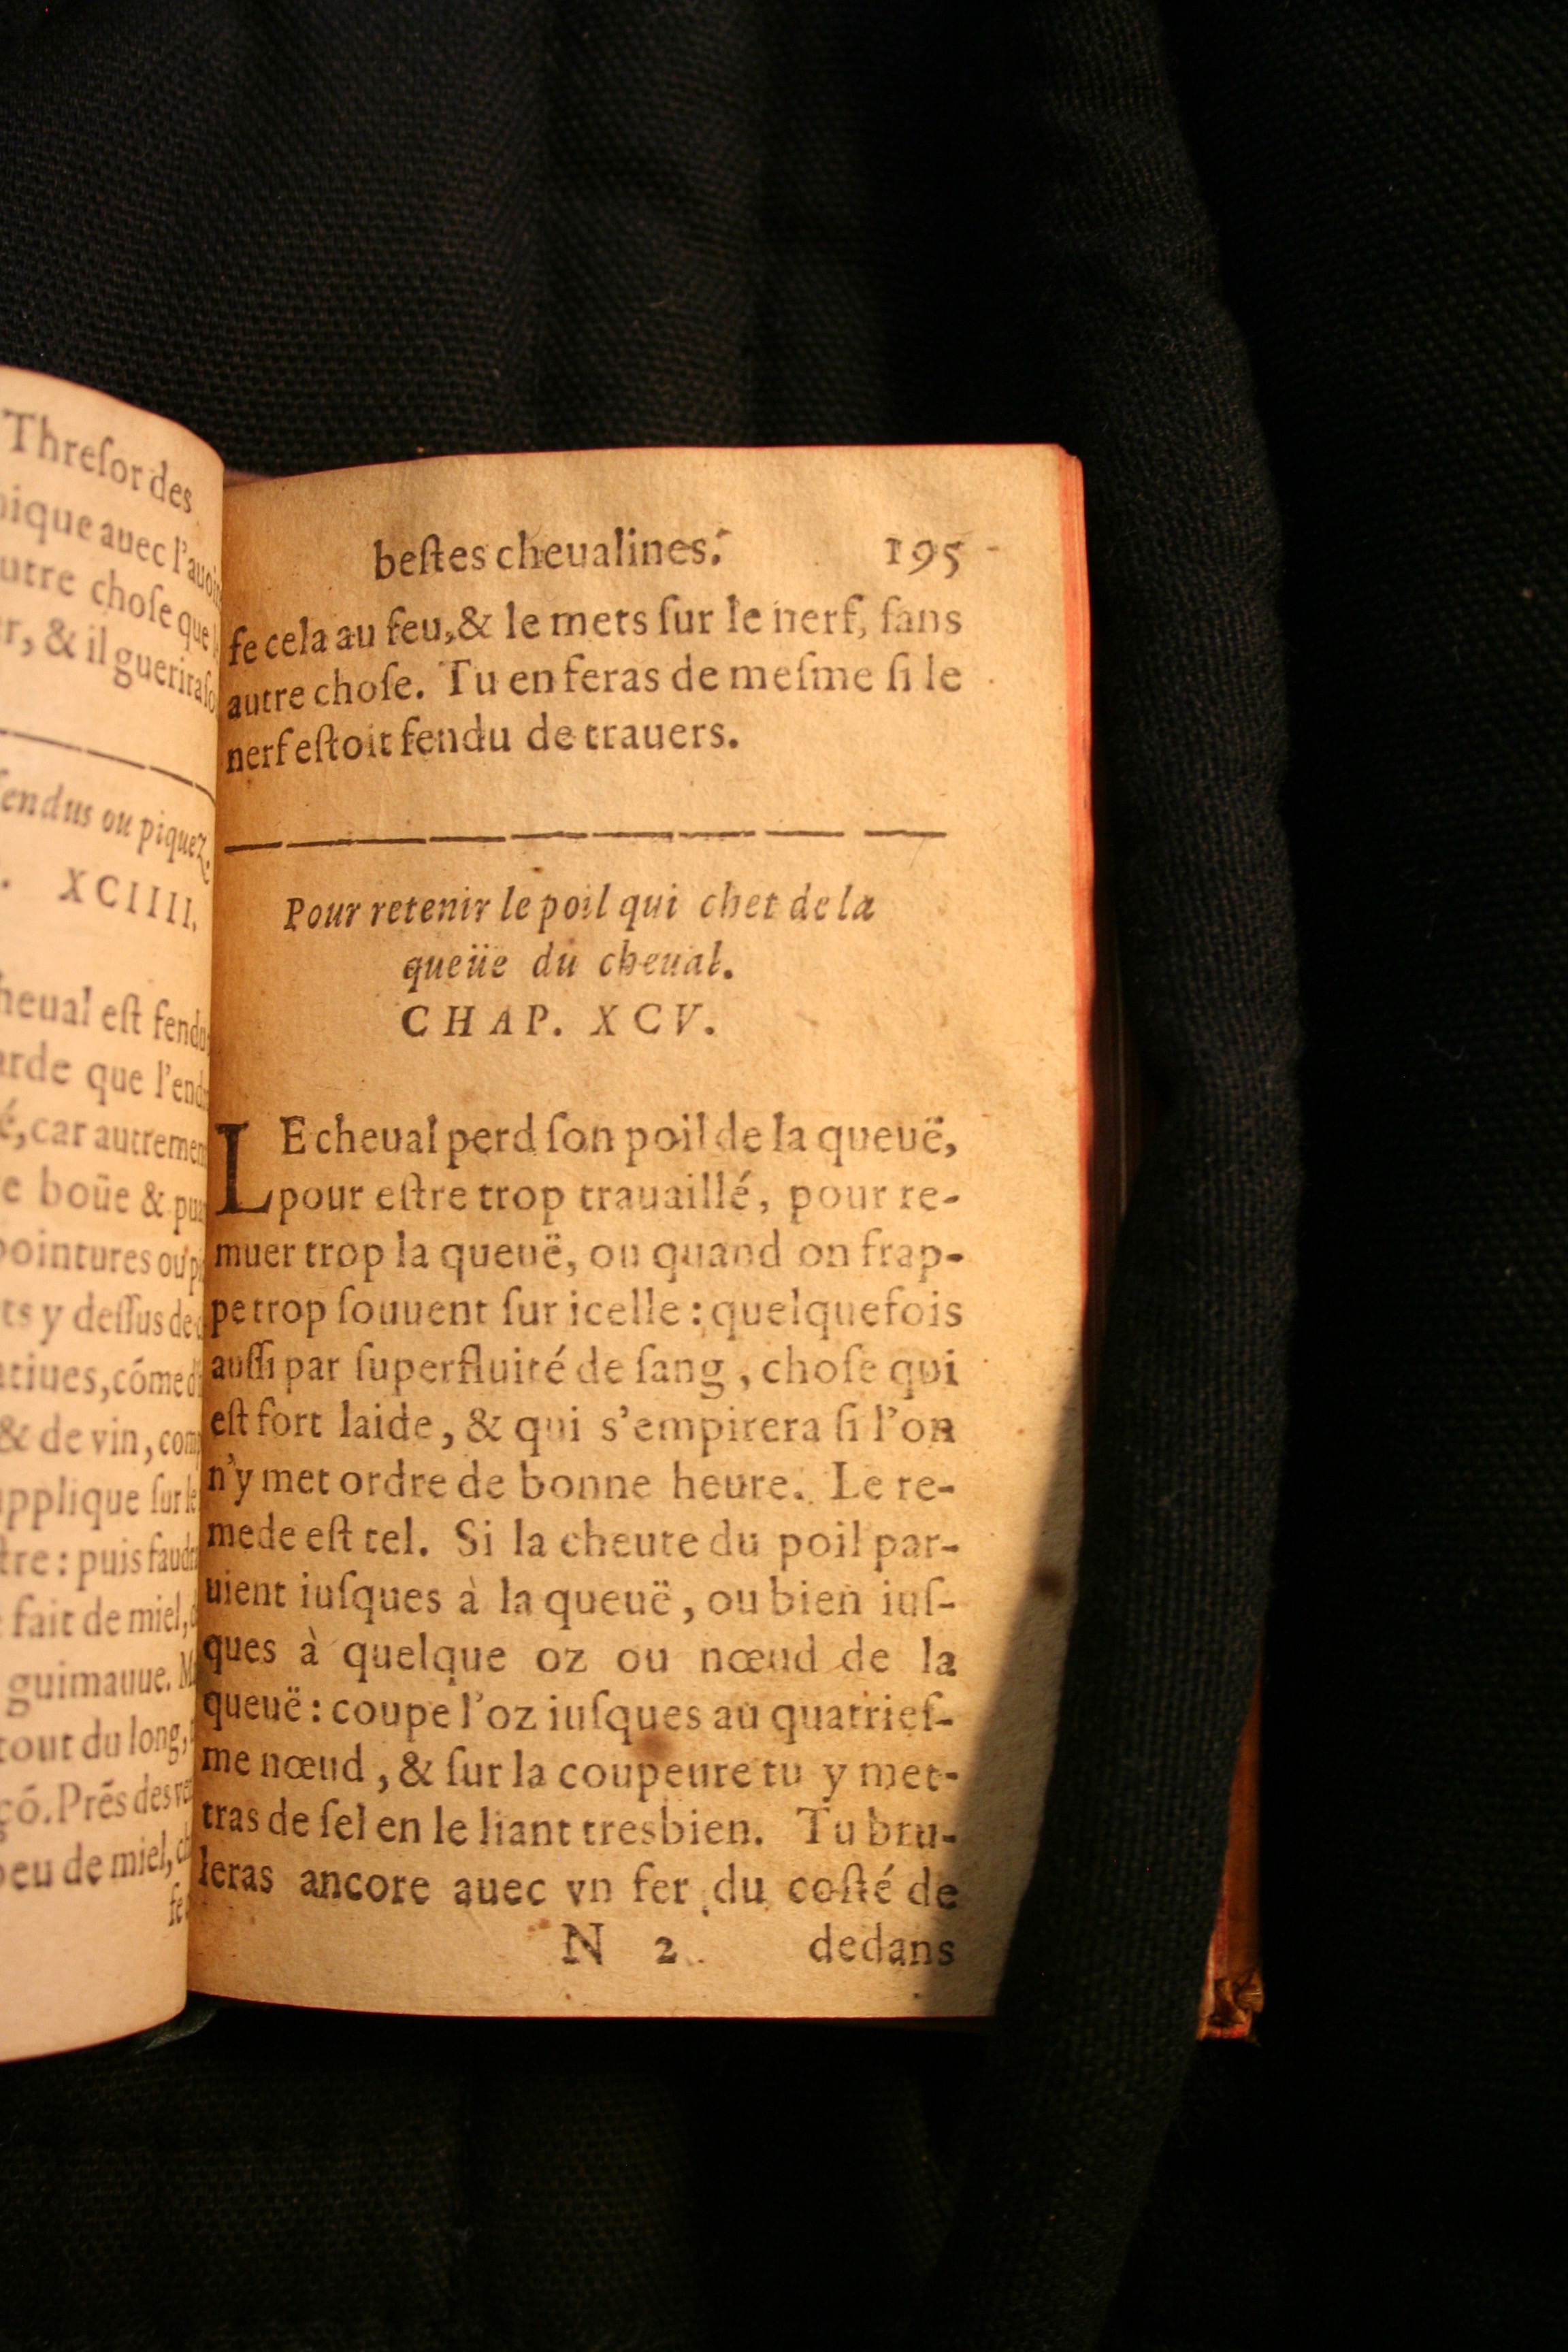 Threſor des
ique auec l'auoi
utre choſe que
r, & il guerira
endus ou piquez.
. XCIIII.
heual eſt fendu
arde que l'end
é, car autremen
e boüe & pua
pointures ou
ts y deſſus de
atiues, cóme
& de vin, com
applique ſur le
tre : puis faud
fait de miel,
guimauue.
tout du long,
çó. Prés des
peu de miel,
fe
beſtes cheualines. 195
fe cela au feu, & le mets ſur le nerf, ſans
autre choſe. Tu en feras de meſme ſi le
nerf eſtoit fendu de trauers.
Pour retenir le poil qui chet de la
queüe du cheual.
CHAP. XCV.
LE cheual perd ſon poil de la queuë,
pour eſtre trop trauaillé, pour re-
muer trop la queuë, ou quand on frap-
pe trop ſouuent ſur icelle : quelquefois
auſſi par ſuperfluité de ſang, choſe qui
eſt fort laide, & qui s'empirera ſi l'on
n'y met ordre de bonne heure. Le re-
mede eſt tel. Si la cheute du poil par-
uient iuſques à la queuë, ou bien iuſ-
ques à quelque oz ou nœud de la
queuë : coupe l'oz iuſques au quatrieſ-
me nœud, & ſur la coupeure tu y met-
tras de ſel en le liant tresbien. Tu bru-
leras ancore auec vn fer du coſté de
N 2 dedans